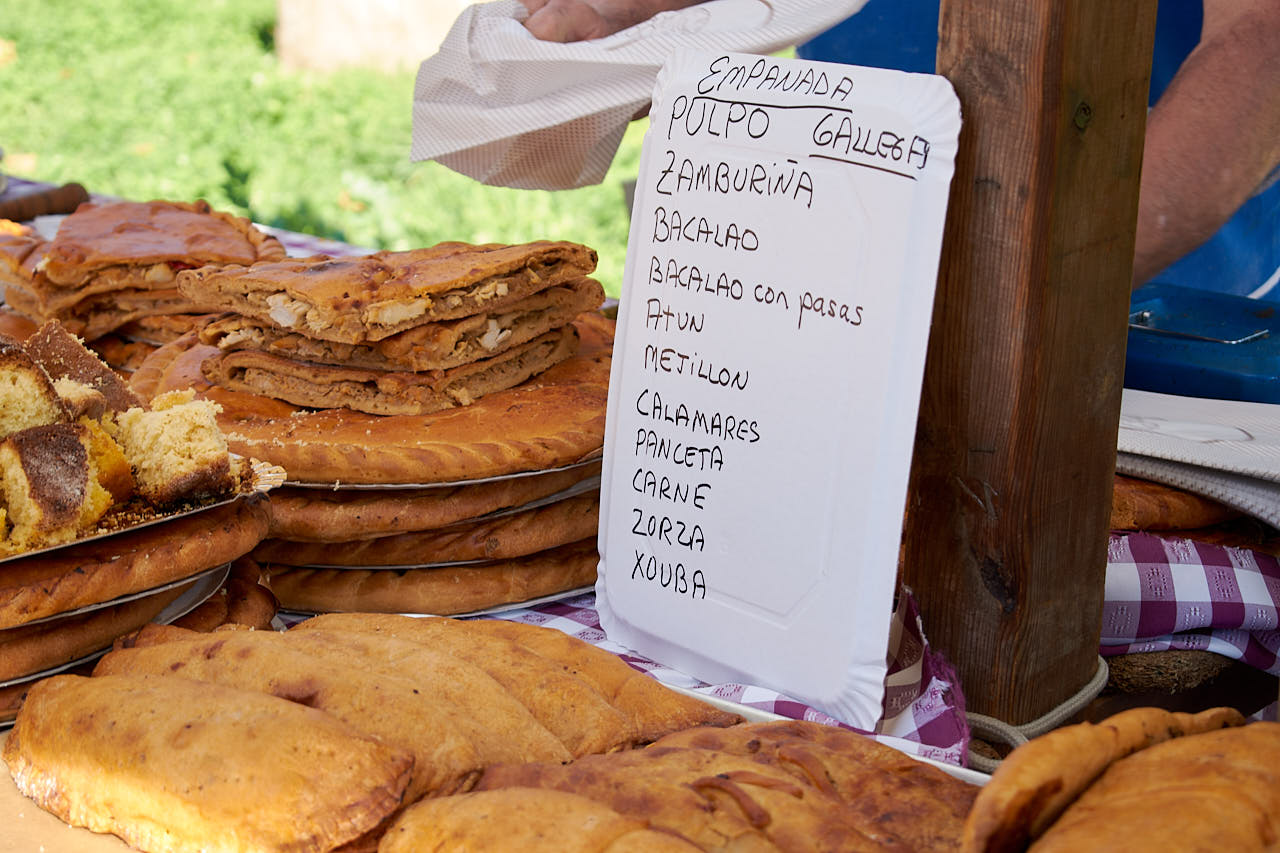 EMPANADA
PULPO GALLEGA
ZAMBURIÑA
BACALAO
BACALAO con pasas
ATUN
MEJILLON
CALAMARES
PANCETA
CARNE
ZORZA
XOUBA